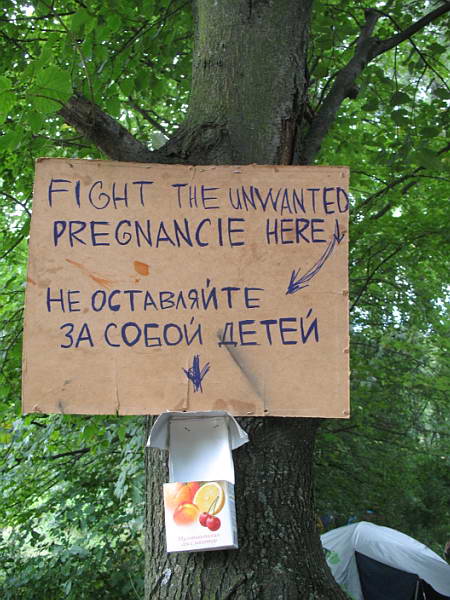 FIGHT THE UNWANTED
PREGNANCIE HERE
НЕ ОСТАВЛЯЙТЕ
ЗА СОБОЙ ДЕТЕЙ